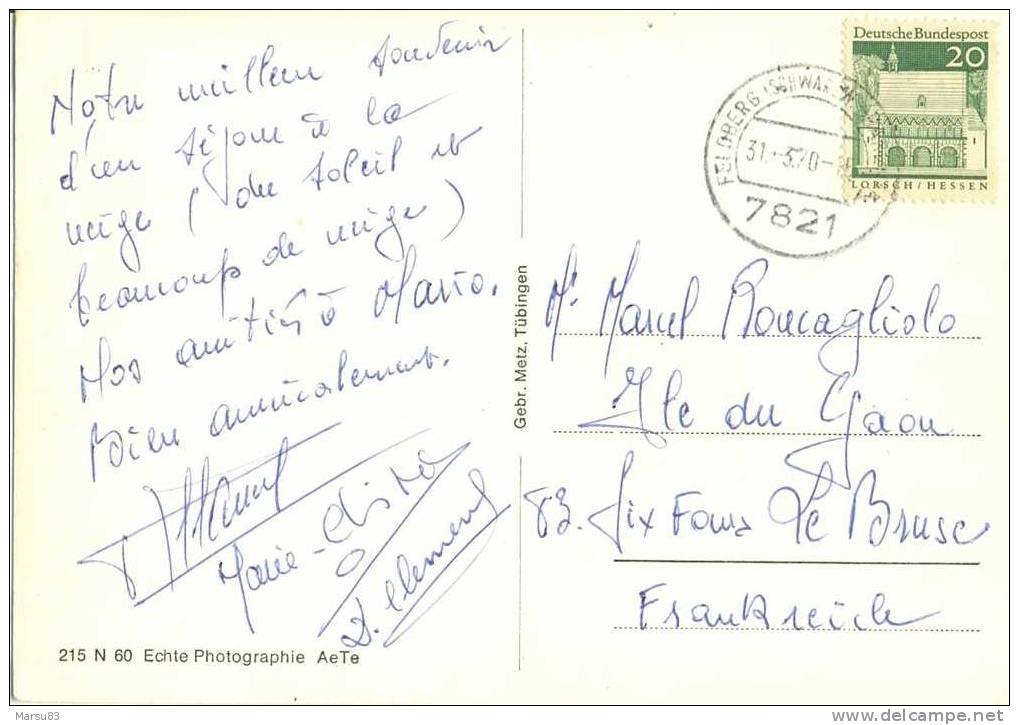 Notre meilleur souvenir
d'un séjour à la
neige (du soleil et
beaucoup de neige)
Nos amitiés à Mario.
Bien amicalement.
Marie-
D. Clement
215 N 60 Echte Photographie AeTe
Gebr. Metz, Tübingen
Deutsche Bundespost
20
LORSCH/HESSEN
FELDBERG (SCHWARZW
31.-3.70-
7821
Mr Marcel Roncagliolo
Ile du Gaou
83. Six Fours Le Brusc
Frankreich
Marsu83
www.delcampe.net